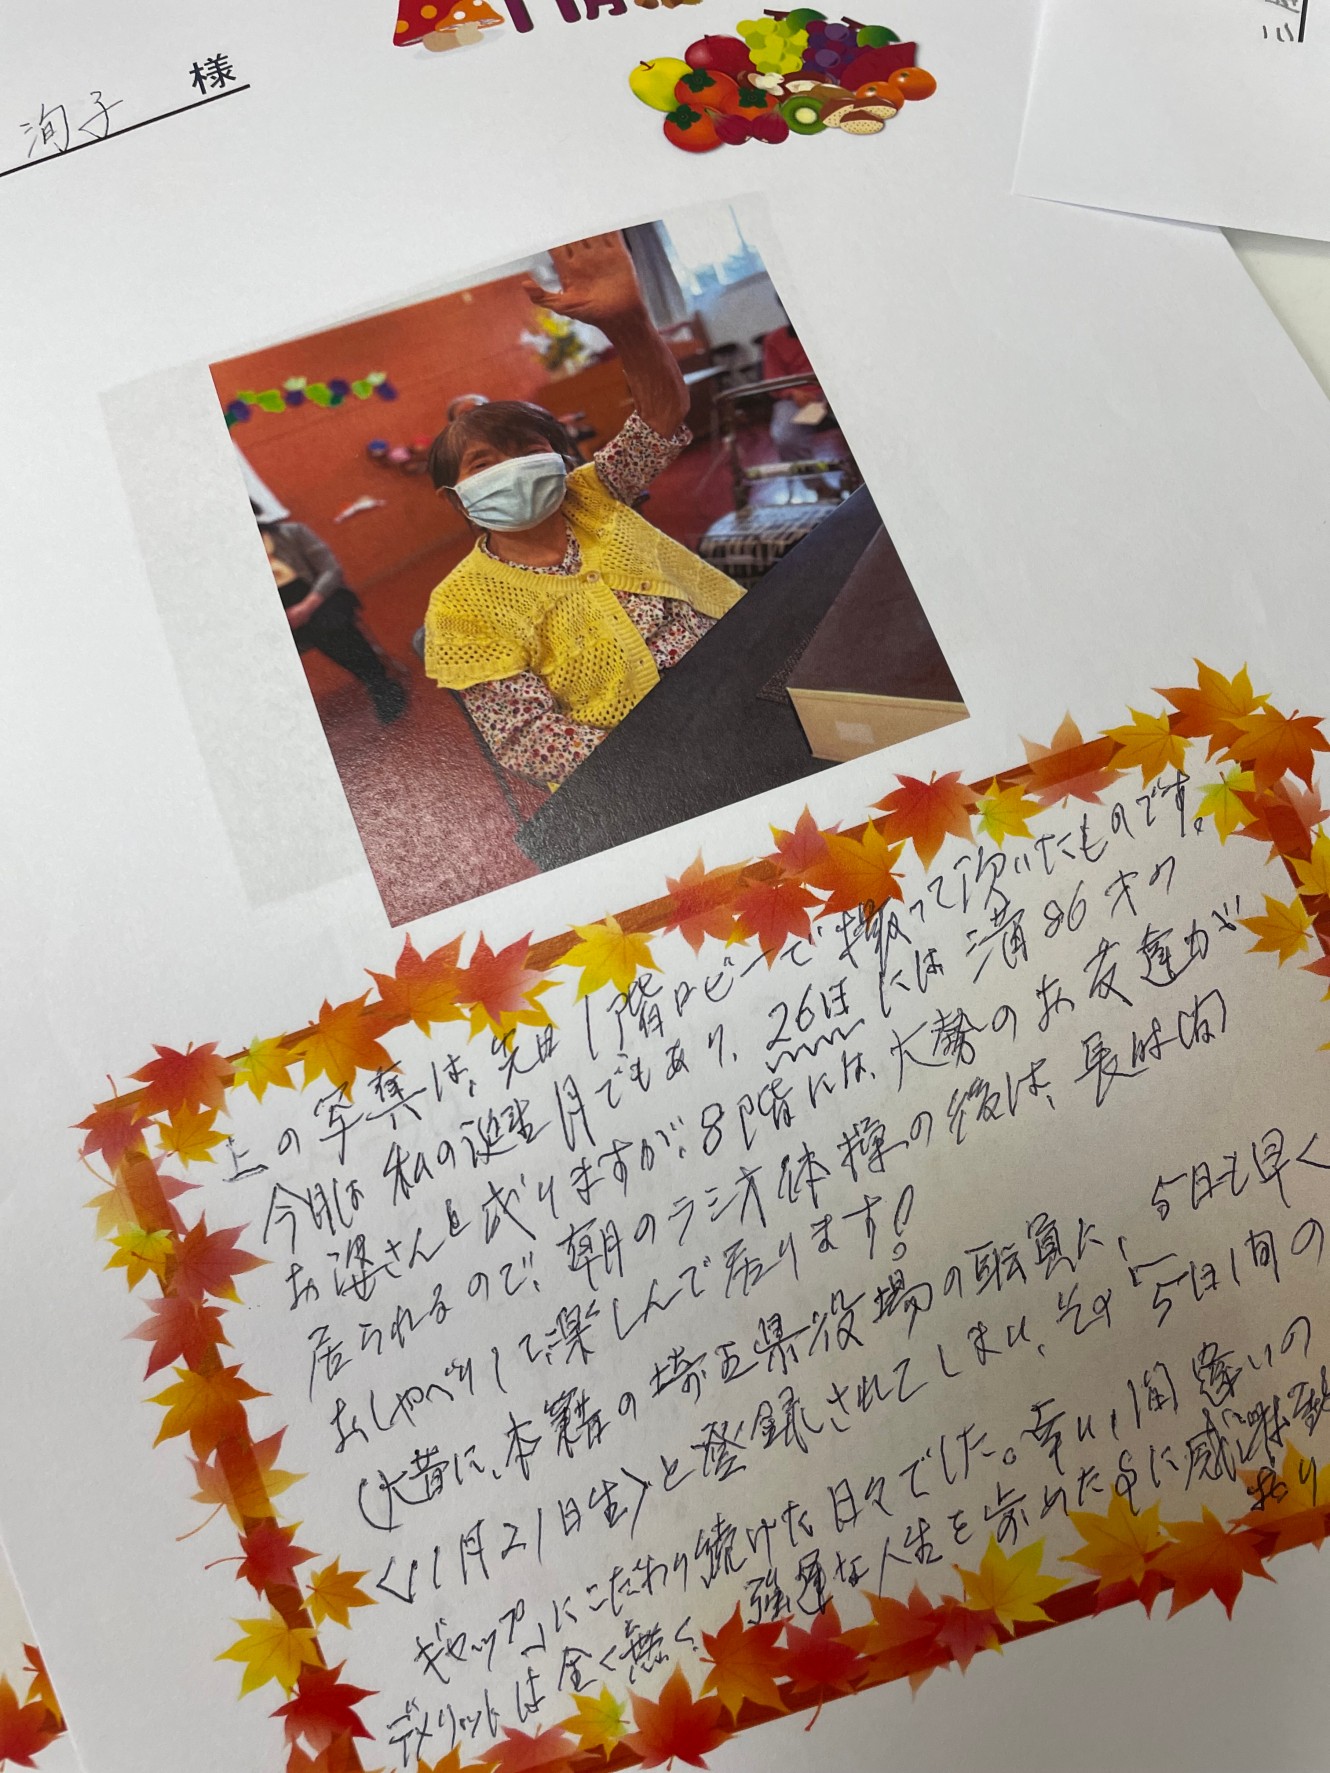 洵子 様
上の写真は、先日1階ロビーで撮って頂いたものです。
今月は私の誕生月でもあり、26日には満86才の
お婆さんと成りますが、8階には、大勢のお友達が
居られるので、朝のラジオ体操の後は、長时间
おしゃべりして楽しんで居ります!
(大昔に、本籍の埼玉県役場の職員に、5日も早く
〈11月21日生〉と登録されてしまい、その「5日间の
ギャップ」にこだわり続けた日々でした。幸い、1间違いの
デメリットは全く無く、強運な人生を歩めた事に感謝
おり